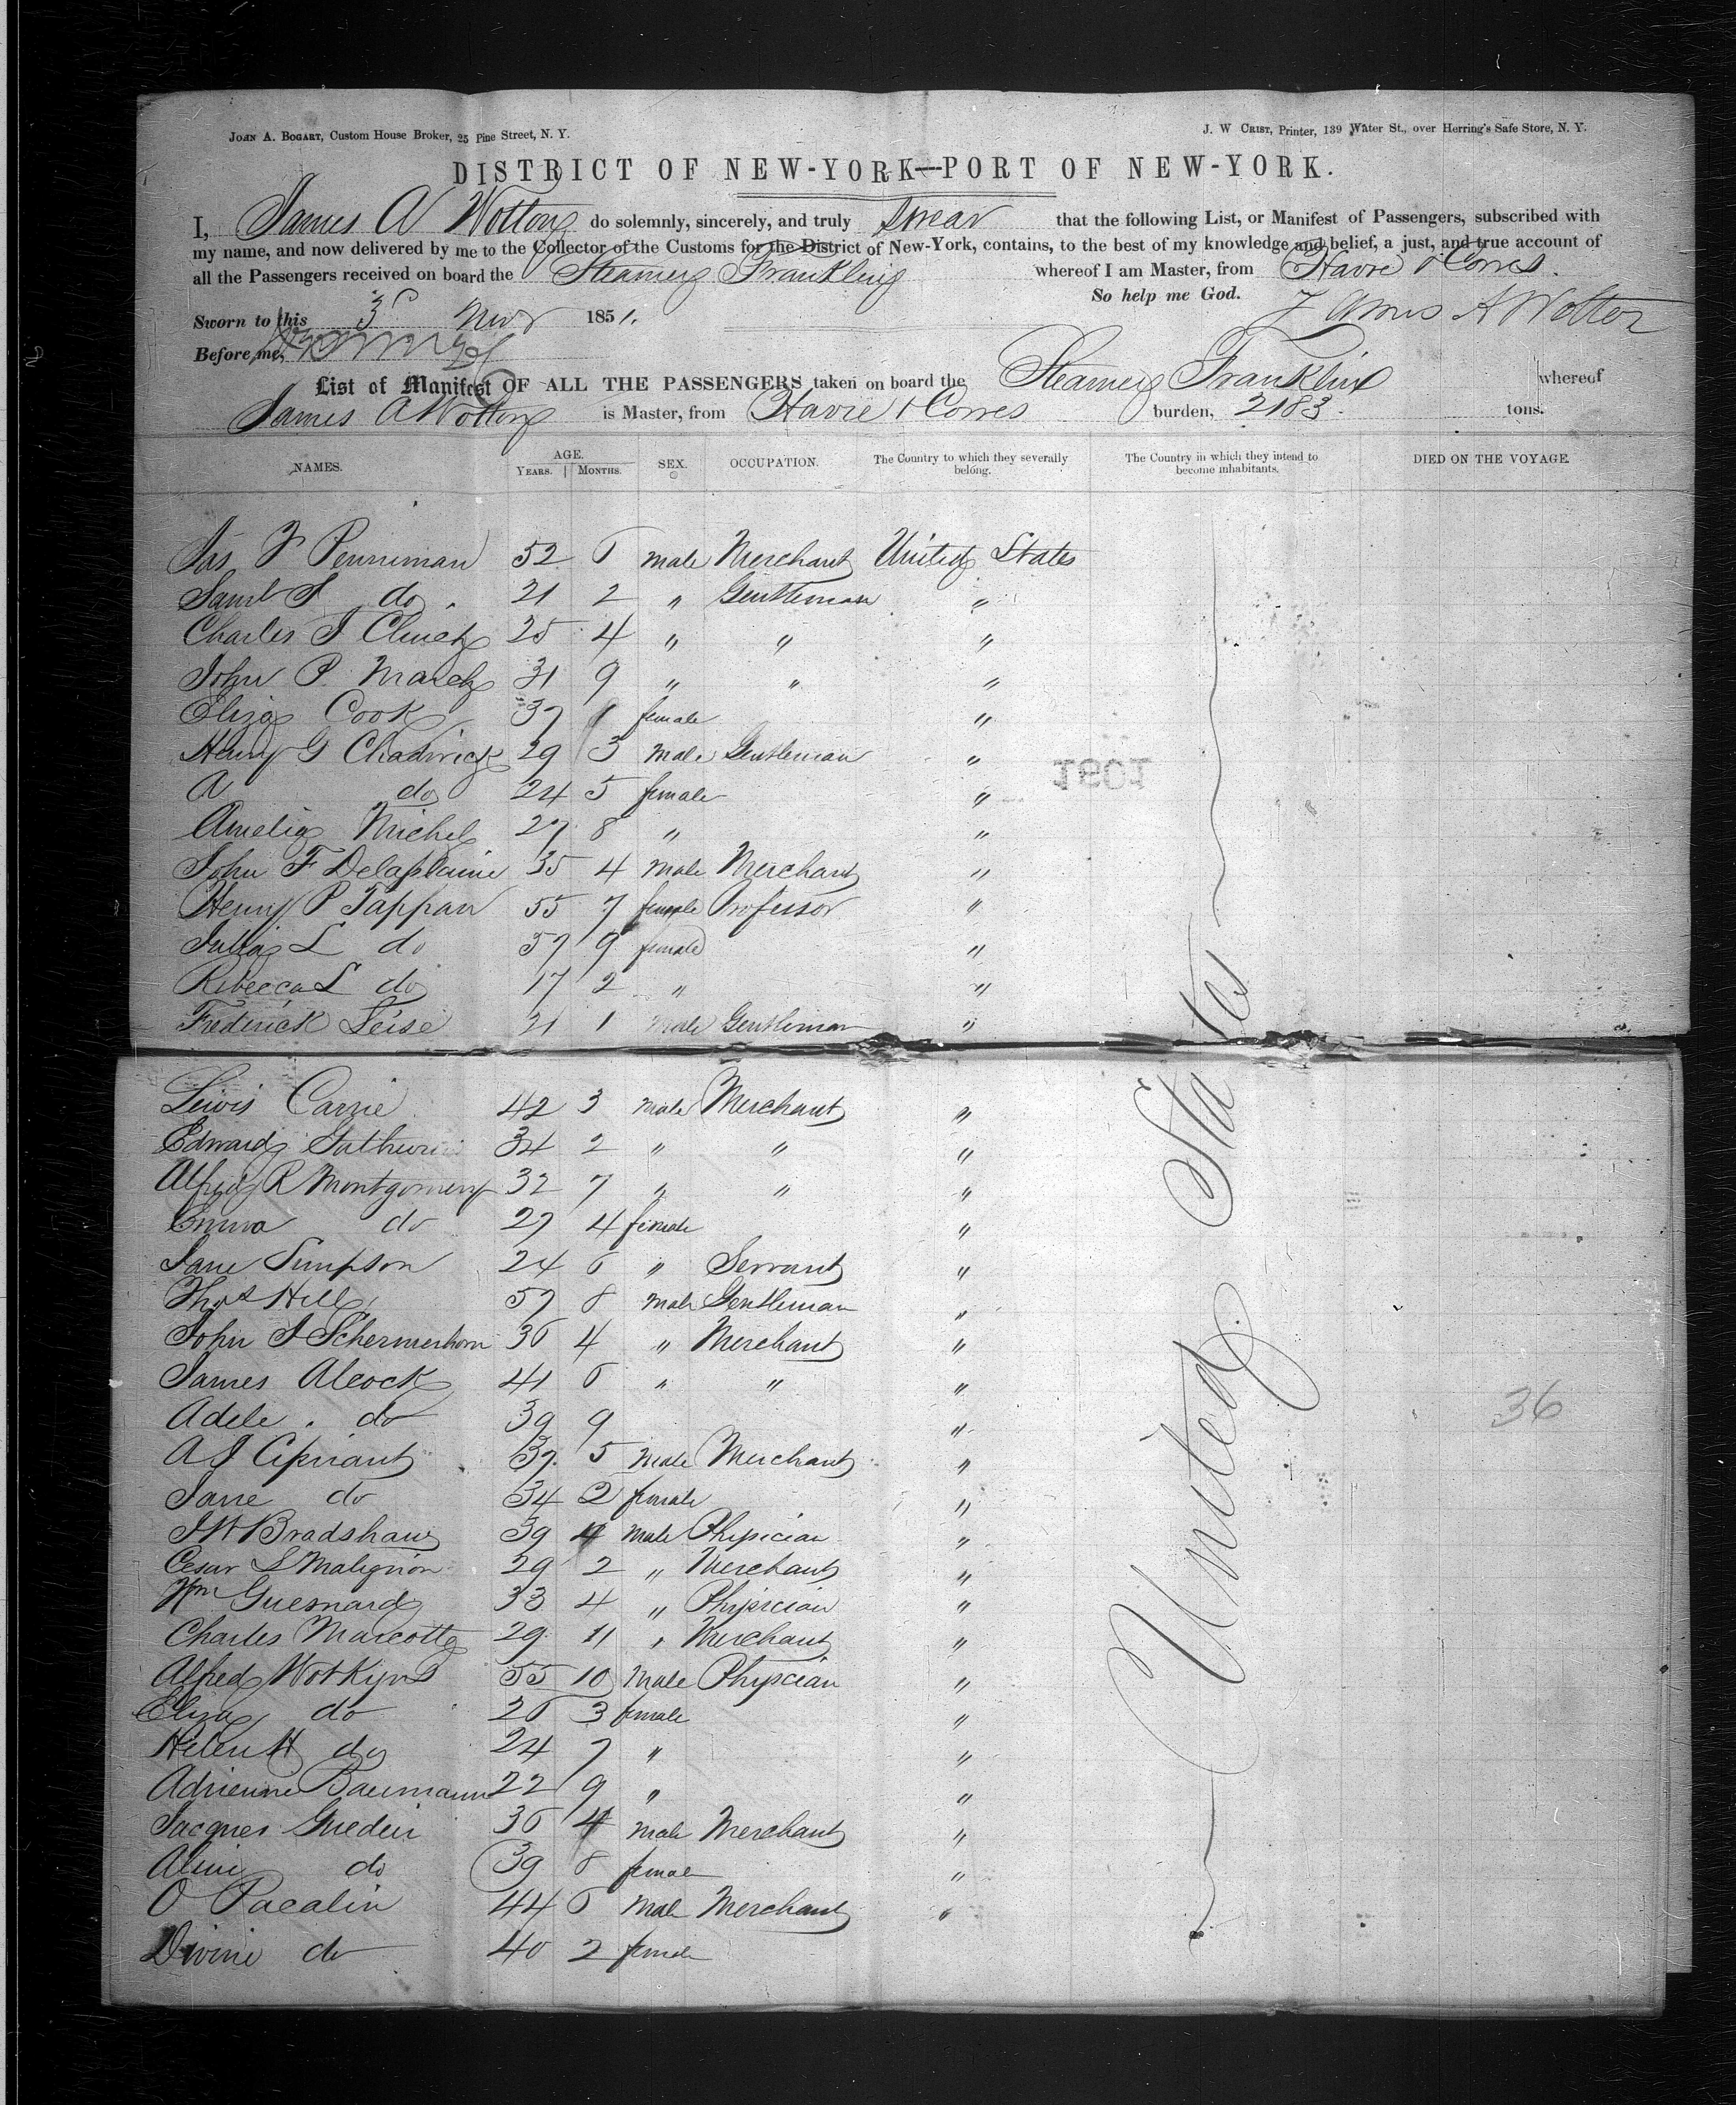 JOHN A. BOGART, Custom House Broker, 25 Pine Street, N. Y.
J. W CRIST, Printer, 139 Water St., over Herring's Safe Store, N. Y.
DISTRICT OF NEW-YORK—PORT OF NEW-YORK.
I, James A Wotton do solemnly, sincerely, and truly swear that the following List, or Manifest of Passengers, subscribed with
my name, and now delivered by me to the Collector of the Customs for the District of New-York, contains, to the best of my knowledge and belief, a just, and true account of
all the Passengers received on board the Steamer Franklin whereof I am Master, from Havre & Cowes.
So help me God.
Sworn to this 3 Nov 1851.
James A Wotton
Before me,
List of Manifest OF ALL THE PASSENGERS taken on board the Steamer Franklin whereof
James A Wotton is Master, from Havre & Cowes burden, 2183 tons.
NAMES. AGE. YEARS. MONTHS. SEX. OCCUPATION. The Country to which they severally belong. The Country in which they intend to become inhabitants. DIED ON THE VOYAGE
Jas F Penniman 52 6 male Merchant United States
Saml S do 21 2 " Gentleman "
Charles J Cluck 25 4 " " "
John P March 31 9 " " "
Eliza Cook 37 1 female "
Henry G Chadwick 29 3 male Gentleman "
A do 24 5 female "
1601
Amelia Michel 27 8 " "
John F Delaplaine 35 4 male Merchant "
Henry P Tappan 55 7 female Professor "
Julia L do 57 9 female "
Rebecca L do 17 2 " "
Frederick Leise 21 1 male Gentleman "
Lewis Carrie 42 3 male Merchant "
Edward 34 2 " " "
Alfred R Montgomery 32 7 " " "
Emma do 27 4 female "
Jane Simpson 24 6 " Servant "
Thos Hill 57 8 male Gentleman "
John J Schermerhorn 36 4 " Merchant "
James Alcock 41 6 " " "
Adele do 39 9 "
36
A J Cipriant 37 5 male Merchant "
Jane do 34 2 female "
J W Bradshaw 39 4 male Physician "
Cesar L Malignon 29 2 " Merchant "
Wm Guesnard 33 4 " Physician "
Charles Marcotte 29 11 " Merchant "
Alfred Wotkyns 55 10 male Physcian "
Eliza do 26 3 female "
Helen H do 24 7 " "
Adrienne Baumann 22 9 " "
Jacques Guedin 36 4 male Merchant "
Aline do 39 8 female "
O Pacalin 44 6 male Merchant "
Divine do 40 2 female
United States